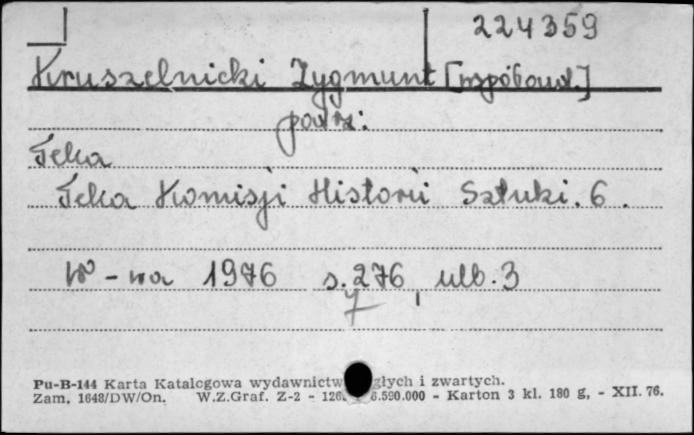 224359
Kruszelnicki Zygmunt [współaut.]
patrz:
Teka
Teka Komisji Historii Sztuki. 6.
W-wa 1976 s. 276, ulb. 3
7
Pu-B-144 Karta Katalogowa wydawnictw głych i zwartych.
Zam. 1648/DW/On. W.Z.Graf. Z-2 - 126. 6.590.000 - Karton 3 kl. 180 g, - XII. 76.